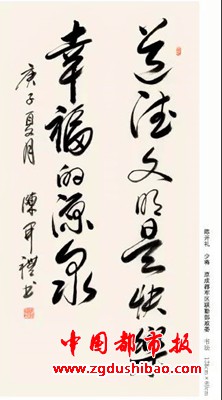 道德文明是快樂
幸福的源泉
庚子夏月 陳开禮书
少将 原成都军区联勤部政委 书法
中国都市报
www.zgdushibao.com